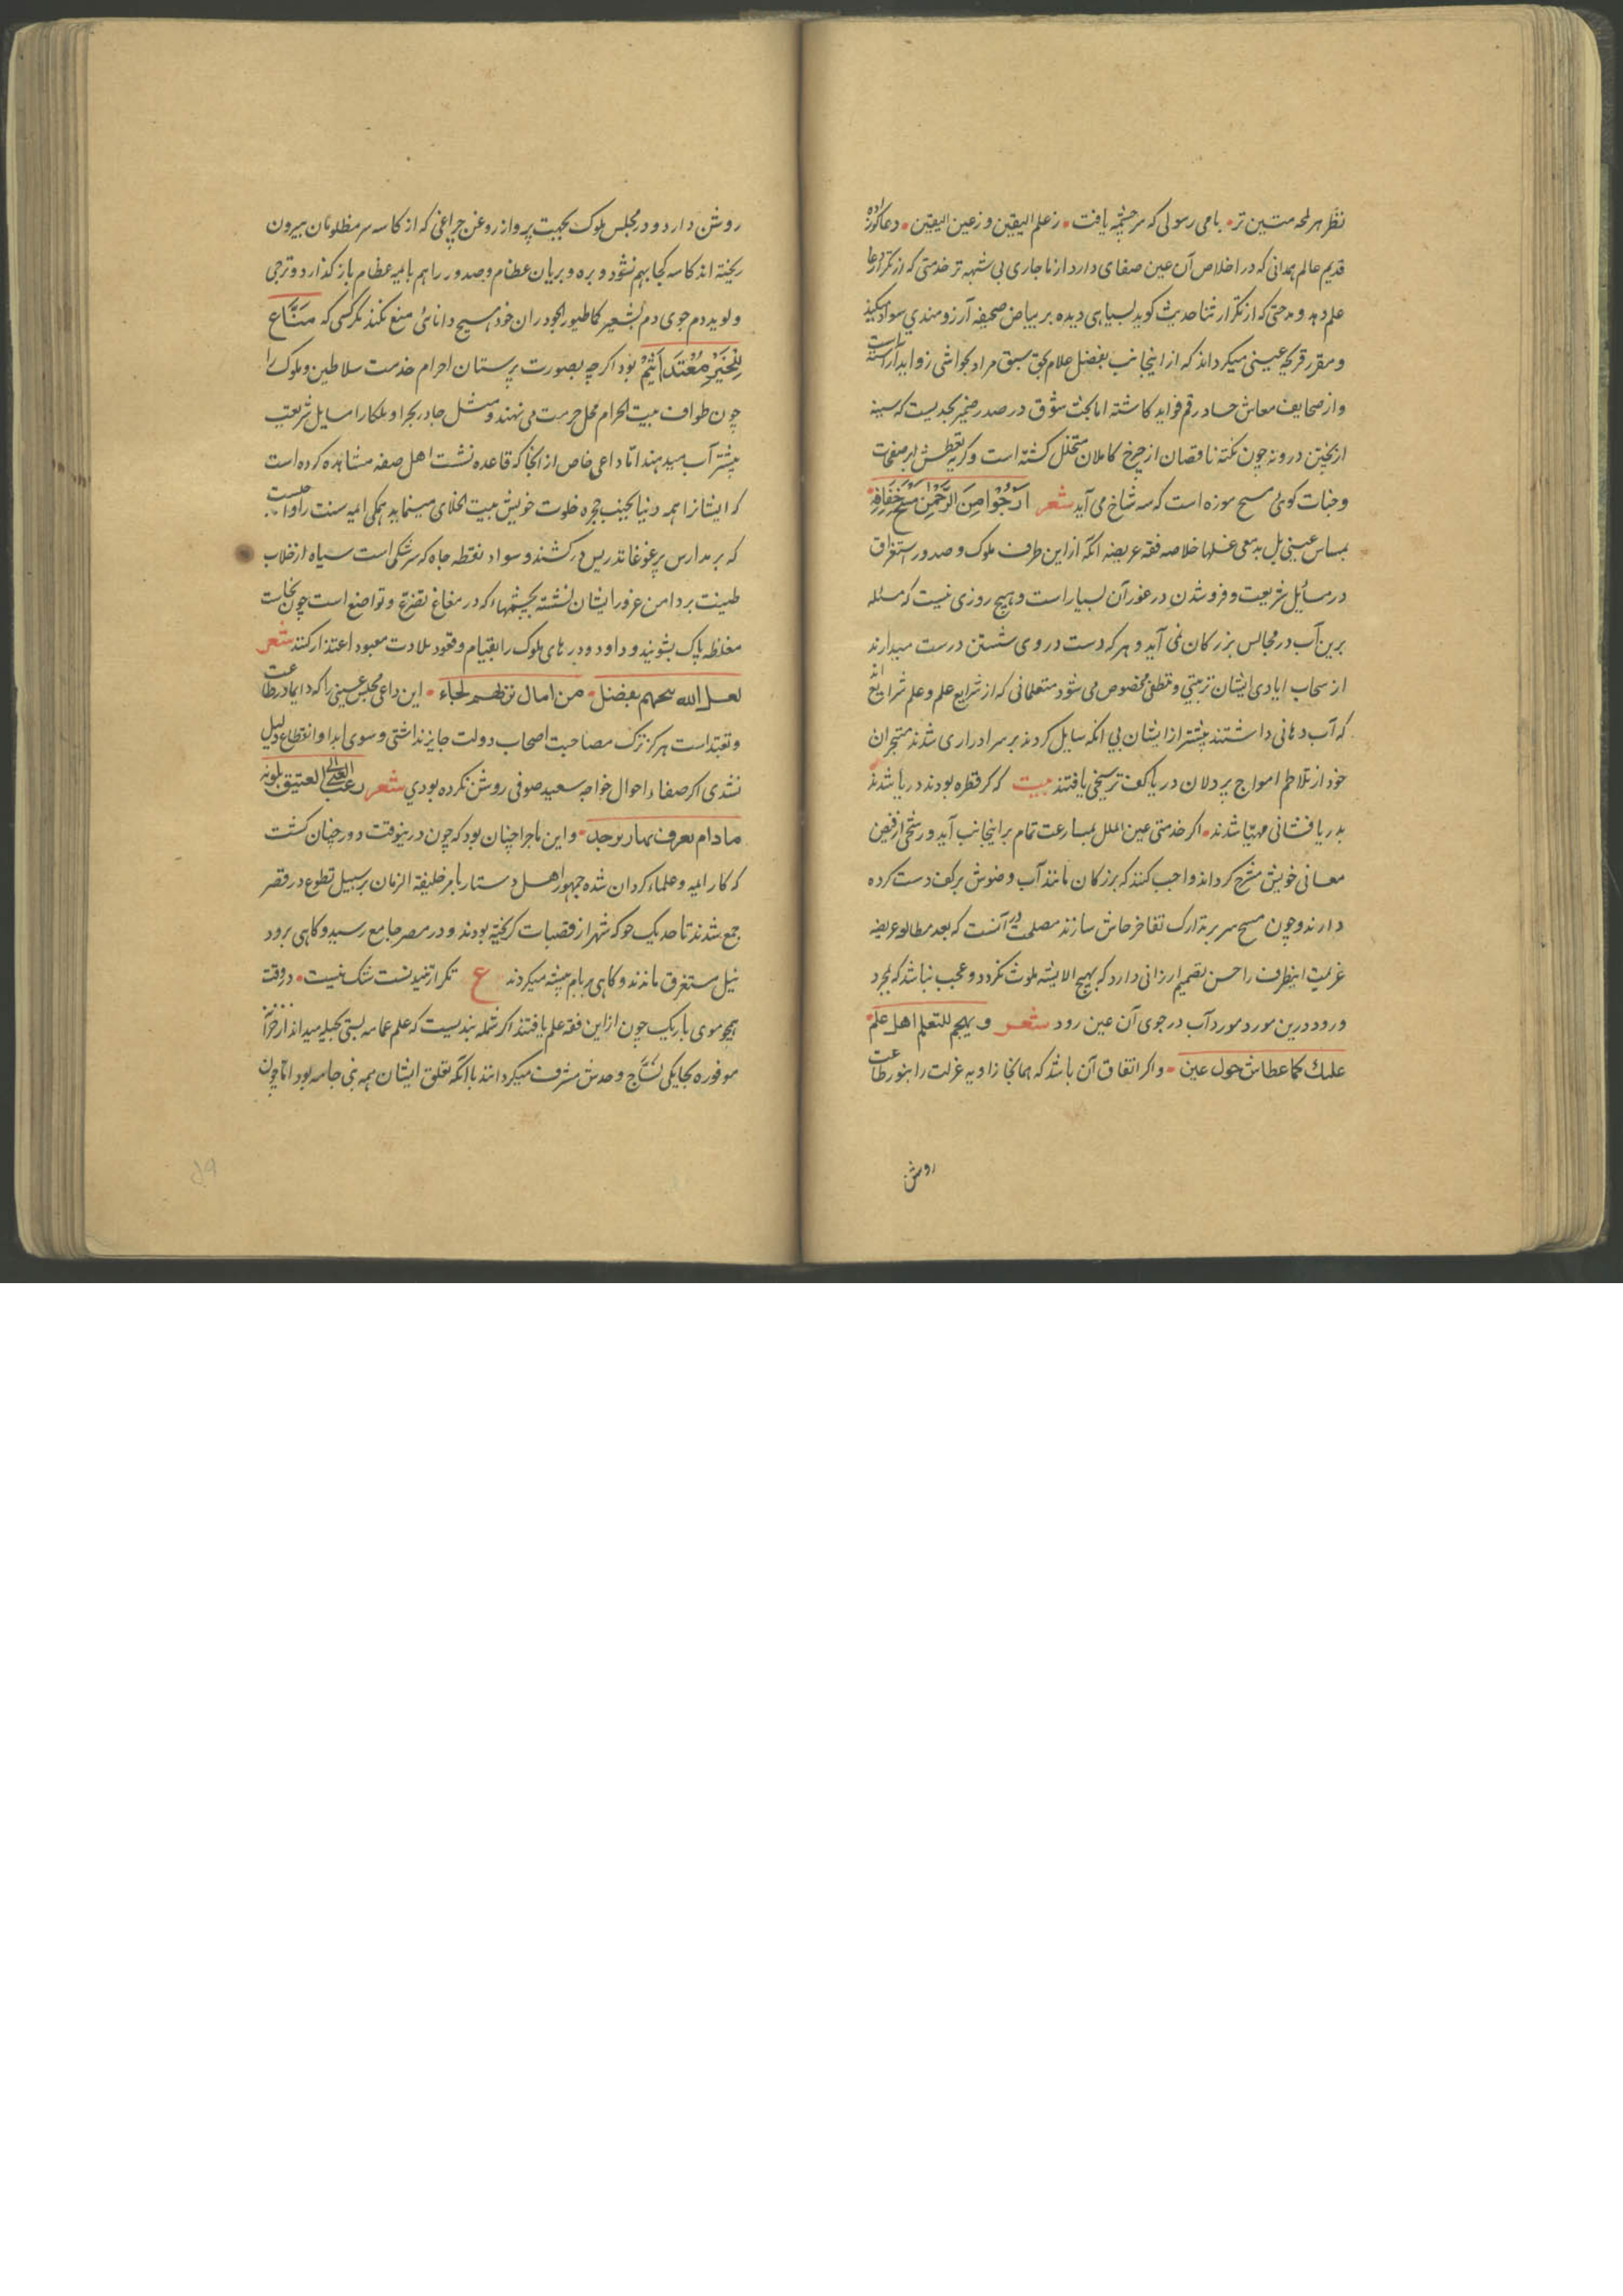 نظر هر لمحه متین تر • بامی رسولی که سرچشمه یافت • ز علم الیقین و ز عین الیقین • دعاکوزاده
قدیم عالم همدانی که در اخلاص آن عین صفای دارد از ماجاری بی شبهه تر خدمتی که از تکرار دعا
علم دهد و مدحتی که از تکرار ثنا حدیث کوید بسیاهی دیده بر بیاض صحیفه آرزومندی سواد میکند
و مقرر قریحه عینی میکرداند که از اینجانب بفضل علام بحق سبق مراد بحواشی زواید آراسته است
و از صحایف معاش حساد رقم فواید کاشته اما بحث شوق در صدر ضمیر بحدیست که سینه
از یختن درونه چون نکته ناقصان از چرخ کاملان متخلل کشته است و کریه تعطش بر صفحات
وجنات کوئی مسح موزه است که سه شاخ می آید شعر ارجوا من الرحمن مسح خفافه •
بمساس عینی بل بدمعی غسلها خلاصه فقه عریضه انکه از این طرف ملوک و صدور را استغراق
در مسایل شریعت و فروشدن در غور آن بسیار است و هیچ روزی نیست که مسئله
برین آب در مجالس بزرکان نمی آید و هر که دست در وی شستن درست میدارند
از سحاب ایادی ایشان تربیتی و تلطفی مخصوص می شود متعلمانی که از شرایع علم و علم شرایع اند
که آب دهانی داشتند پیشتر از ایشان بی انکه سایل کردند بر سر ادراری شدند متبحران
خود از تلاطم امواج پر دلان دریا کف ترسیخی یافتند بیت که کر قطره بودند دریا شدند
بدریافشانی مهیا شدند • اکر خدمتی عین الملل بمسارعت تمام بر اینجانب آید و رشحی از فیض
معانی خویش مشرح کرداند واجب کنند که بزرکان مانند آب وضوش بر کف دست کرده
دارند و چون مسح سر بر تدارک تفاخر جاش سازند مصلحت در آنست که بعد مطالعه عریضه
عزیمت اینطرف را حسن تصمیم ارزانی دارد که بهیچ الایشه ملوث نکردد و عجب نباشد که بمجرد
ورود درین مورد مورد آب در جوی آن عین رود شعر و یهجم للتعلم اهل علم •
علیك کما عطاش حول عین • و اکر اتفاق آن باشد که همانجا زاویه عزلت را بنور طاعت
روش
روشن دارد و در مجلس ملوک بجهت پرواز روغن چراغی که از کاسه سر مظلومان بیرون
ریخته اند کاسه کجا بهم نشود و بره و بریان عظام و صدور را هم بایمه عظام باز کذارد و ترجی
و لوید دم جوی دم لشعیر کما طیور الجود ران خود مسیح دانائی منع نکند مکر کسی که مناع
للخیر معتد اثیم بود اکر چه بصورت پرستان احرام خدمت سلاطین و ملوک را
چون طواف بیت الحرام محل حرمت می نهند و مثل جادر بحر او بلکا را مسایل شریعت
بیشتر آب میدهند اما داعی خاص از انجا که قاعده نشت اهل صفه مشاهده کرده است
که ایشانرا همه دنیا بجنب حجره خلوت خویش بیت الخلای مینماید همکی ایمه سنت را واجبست
که بر مدارس پر غوغا تدریس در کشند و سواد نقطه جاه که سرشکی است سیاه از خلاب
طینت بر دامن غرور ایشان نشسته بچشمهاء که در مغاغ تضرع و تواضع است چون نجاست
مغلظه پاک بشویند و داود و در بهای ملوک را بقیام و قعود بلادت معبود اعتذار کنند شعر
لعل الله یحمهم بفضل • من امال نزلهم لجاء • این داعی مجلس عینی را که دایما در طاعت
و تعبد است هرکز ترک مصاحبت اصحاب دولت جایز نداشتی و سوی ابدا و انقطاع دلیل
نشدی اکر صفاء احوال خواجه سعید صوفی روشن نکرده بودی شعر رعب العلی العتیق بلونه
مادام یعرف نهار بوجد • و این ماجرا چنان بود که چون درینوقت دور چنان کشت
که کار ایمه و علماء کردان شده جمهور اهل دستار بامر خلیفة الزمان بر سبیل تطوع در قصر
جمع شدند تا حد یک حو که شهر از قصبات کریخته بودند و در مصر جامع رسید و کاهی برود
نیل مستغرق ماندند و کاهی بر بام پیشه میکردند ع تکرار تنید نست شک نیست • در وقت
همچو موی باریک چون از این فقه علم یافتند اکر شمله بندیست که علم عمامه بستی بحیله میداند از خزانه
موفوره بجایکی نساج و حدس مشرف میکردانند با انکه تعلق ایشان همه بنی جامه بود اما چون
۵۹